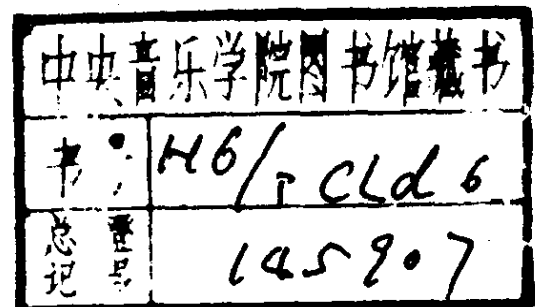 中央音乐学院图书馆藏书
书号 H6/T CLd 6
总登记号 145907